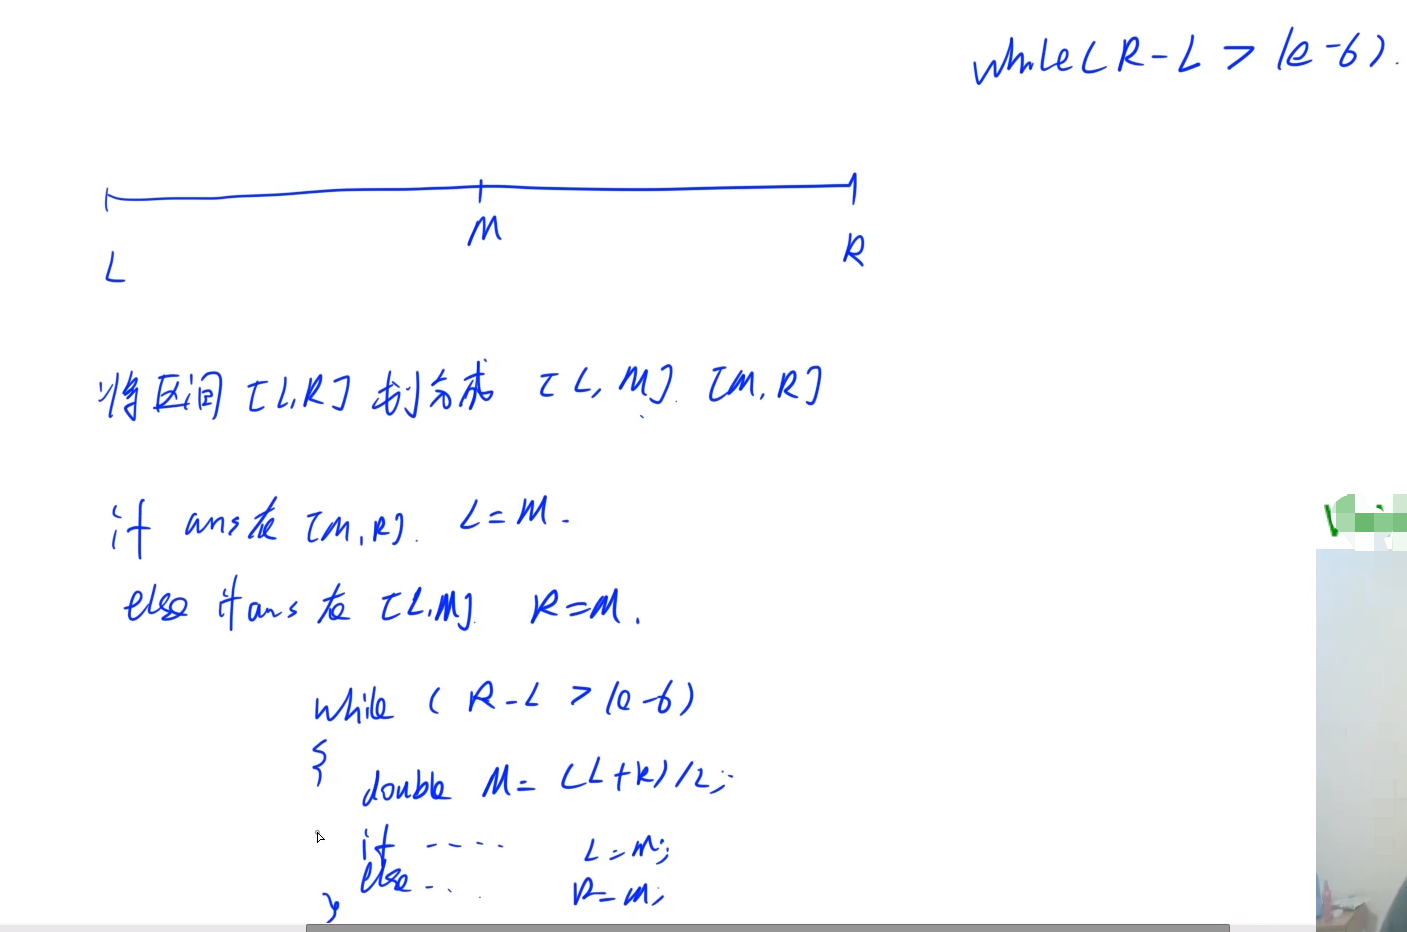 while(R-L > 1e-6).
M
R
L
将区间 [L,R] 划分成 [L, M]. [M, R]
if ans在 [M,R]. L=M.
else if ans 在 [L,M]. R=M.
while ( R-L > 1e-6)
{
double M= (L+R)/2;
if ---- L=M;
else -.. R=M;
}